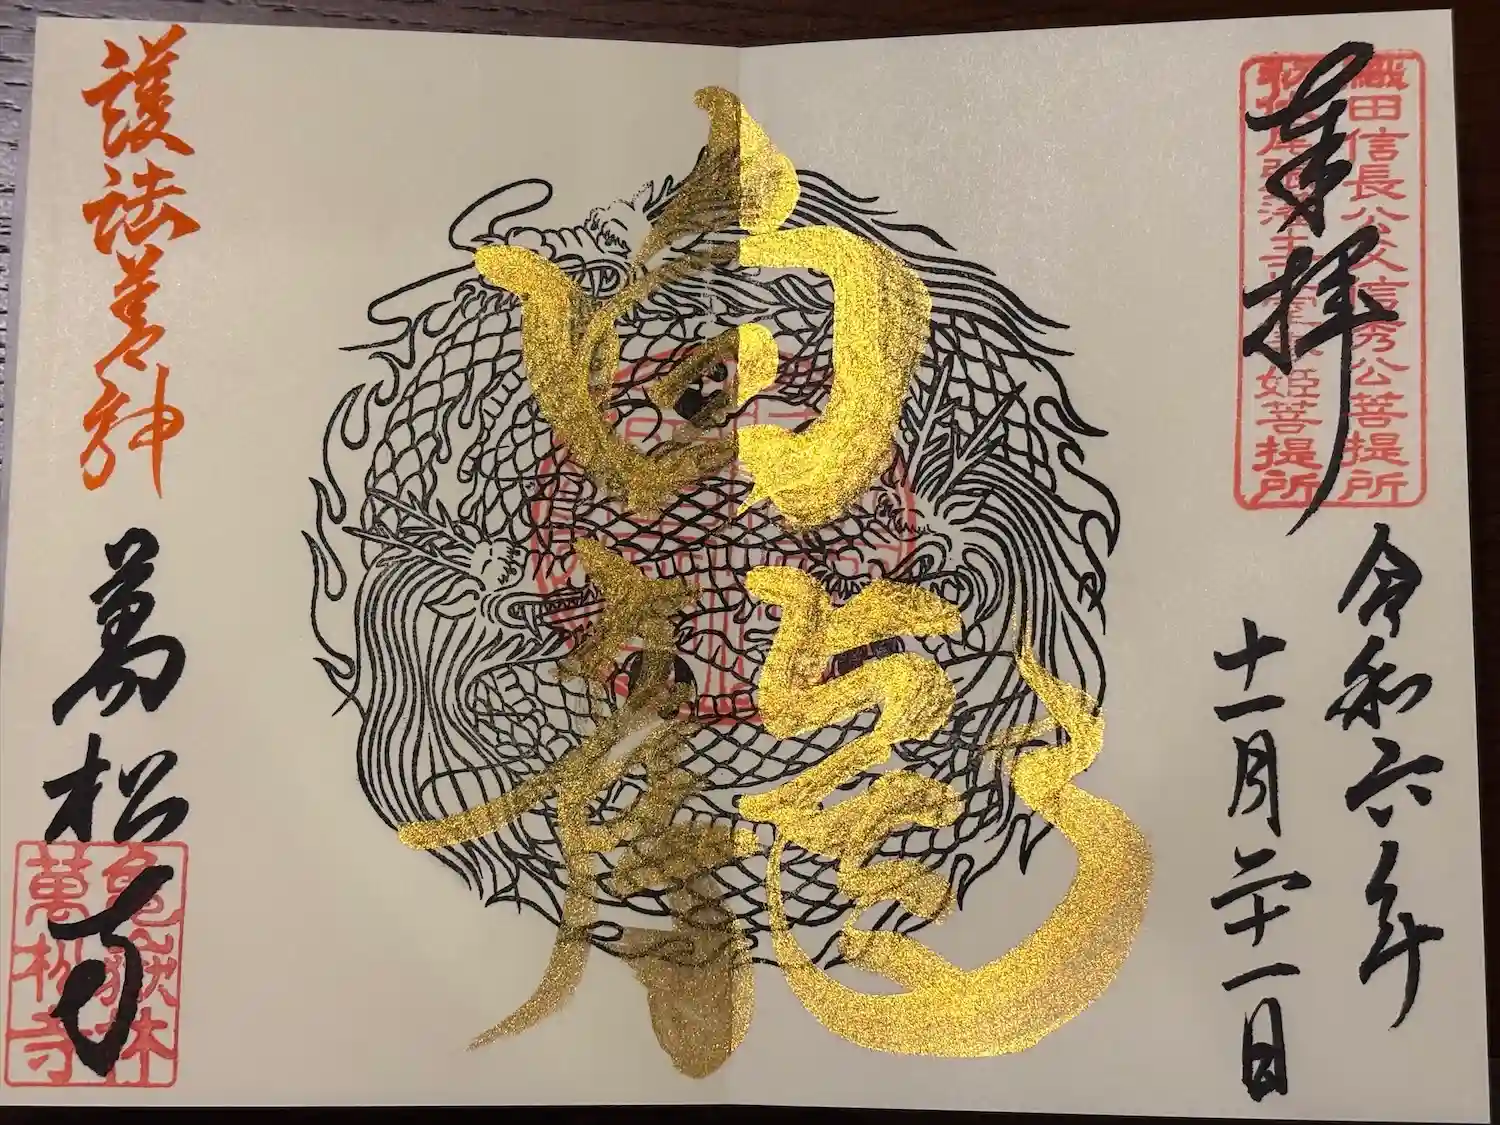 織田信長公父信秀公菩提所
初代尾張藩主正室春姫菩提所
奉拝
令和六年
十一月二十一日
白龍
護法善神
萬松寺
亀嶽林
萬松寺